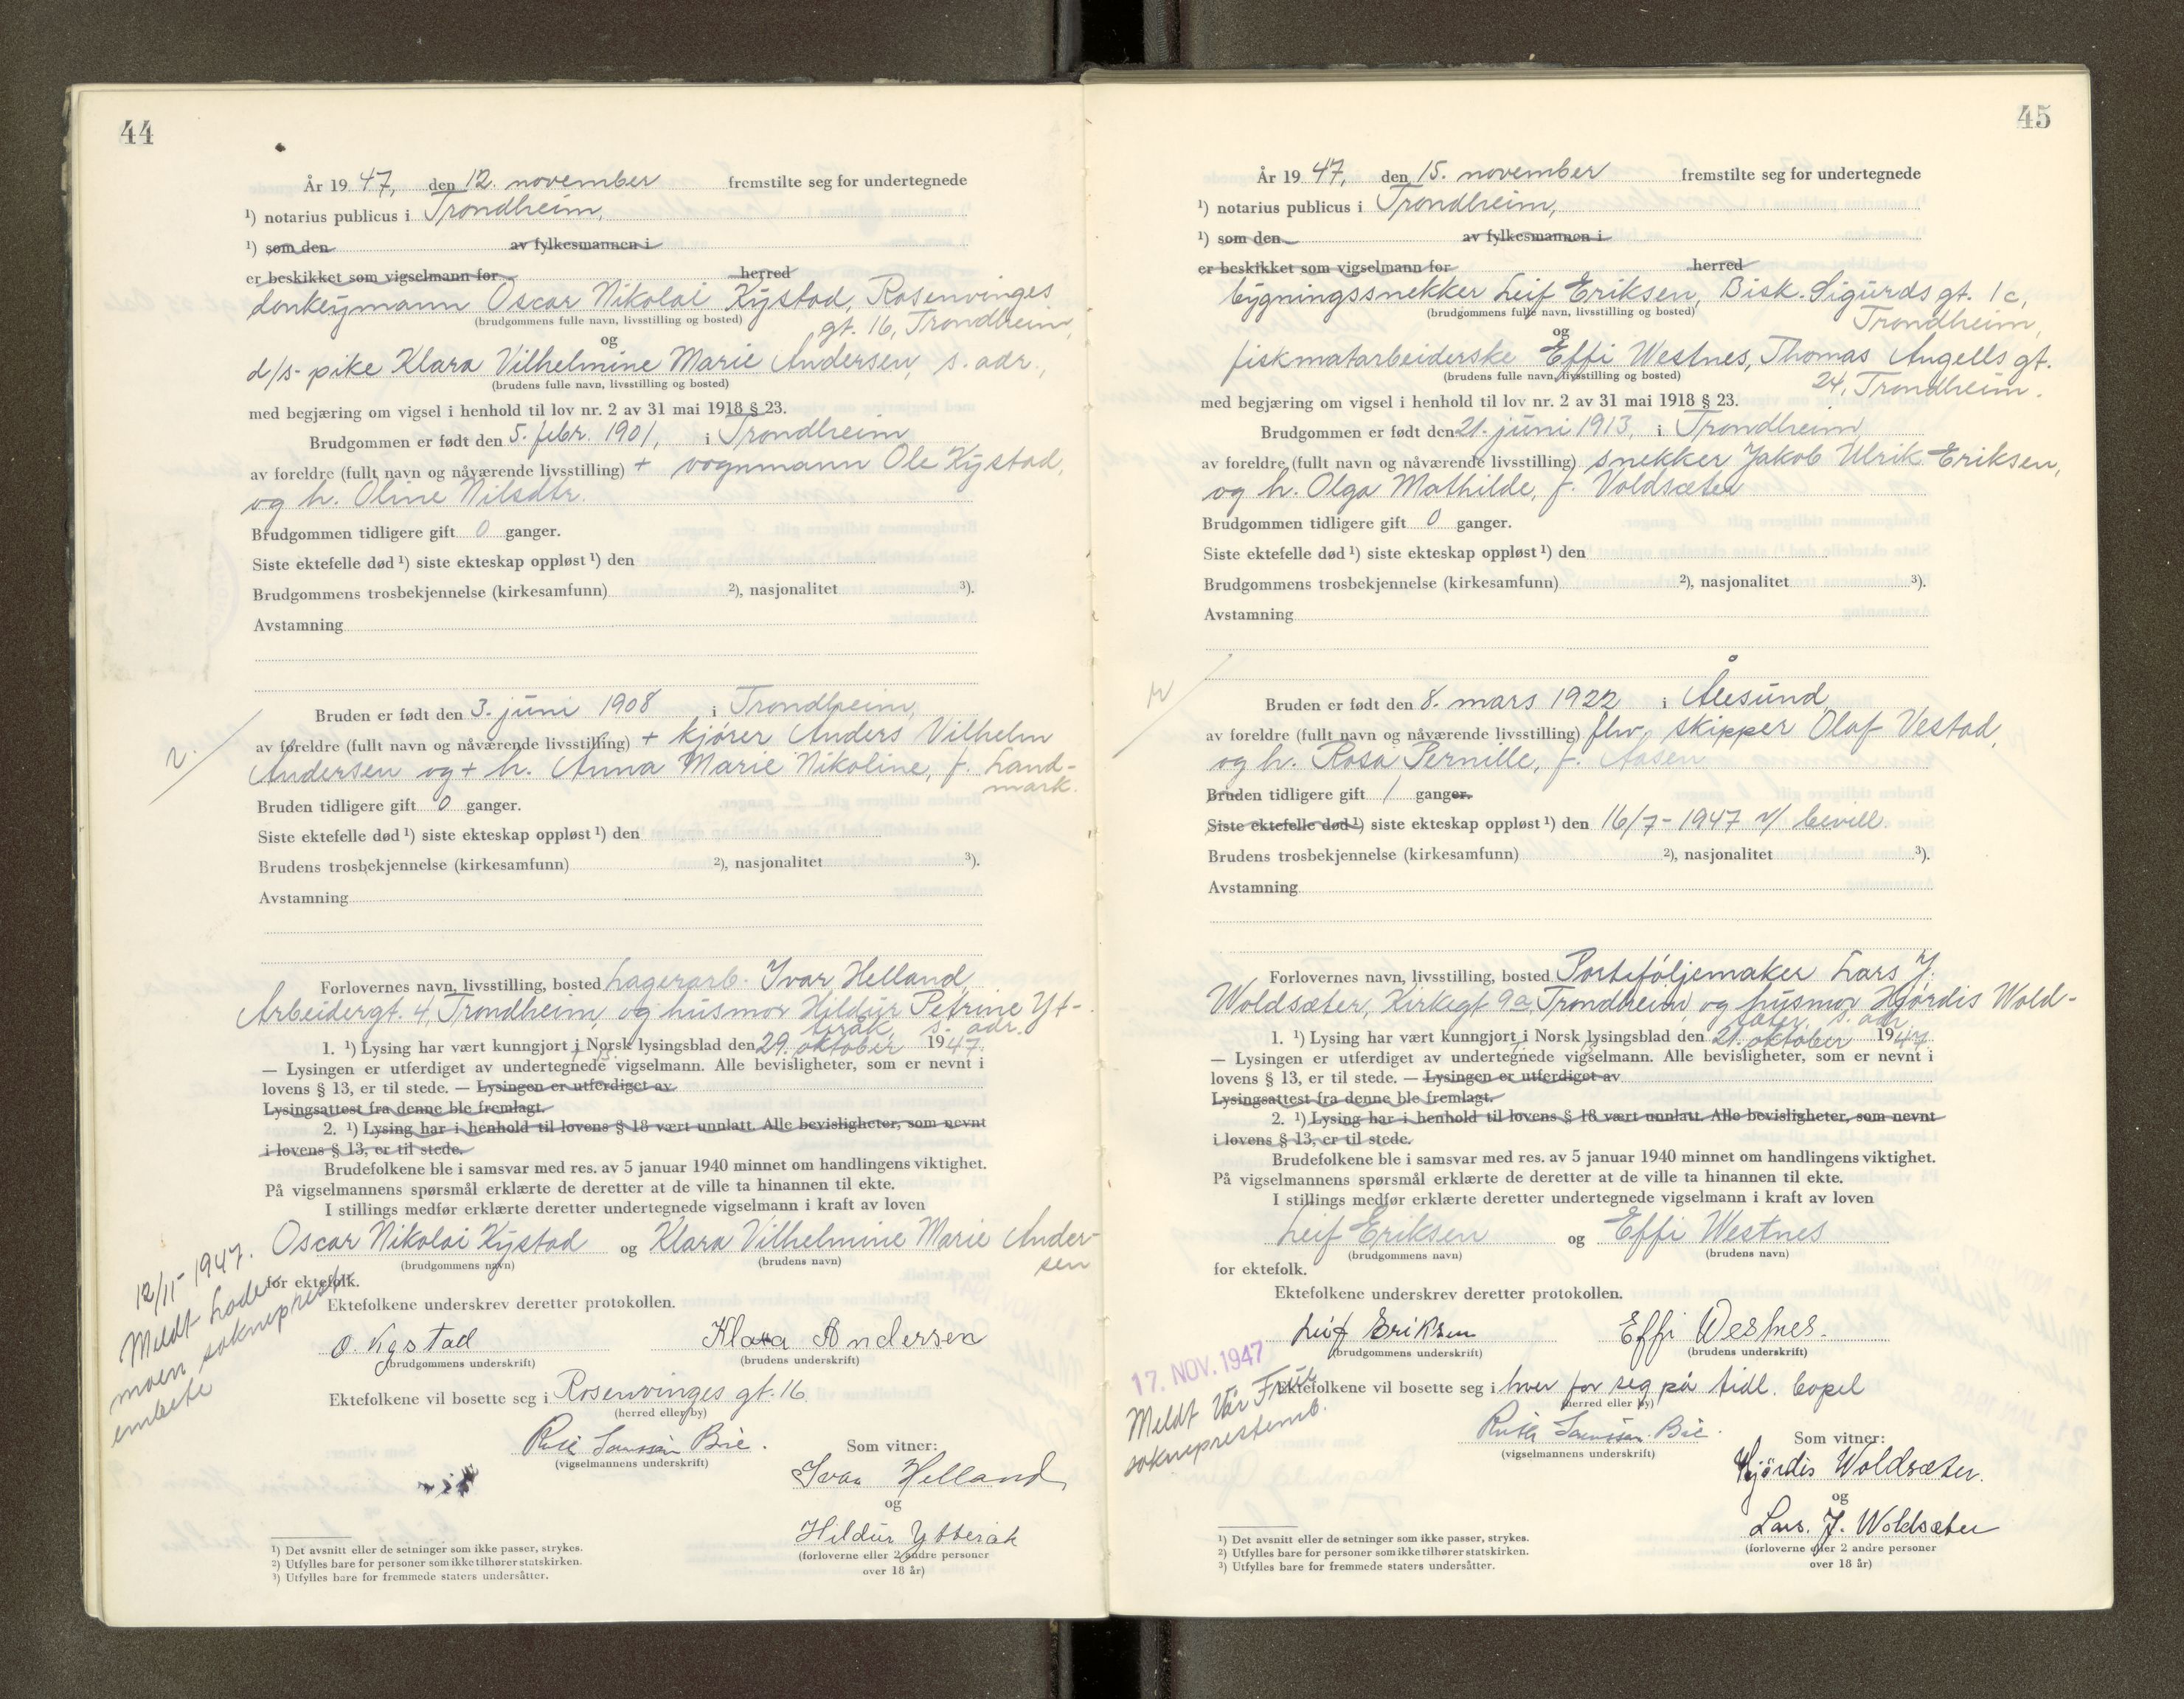 44
År 1947, den 12. november fremstilte seg for undertegnede
¹) notarius publicus i Trondheim,
¹) som den av fylkesmannen i
er beskikket som vigselmann for herred
donkeymann Oscar Nikolai Kystad, Rosenvinges
(brudgommens fulle navn, livsstilling og bosted) gt. 16, Trondheim,
og
d/s- pike Klara Vilhelmine Marie Andersen, s. adr.,
(brudens fulle navn, livsstilling og bosted)
med begjæring om vigsel i henhold til lov nr. 2 av 31 mai 1918 § 23.
Brudgommen er født den 5. febr. 1901, i Trondheim
av foreldre (fullt navn og nåværende livsstilling) + vognmann Ole Kystad,
og h. Oline Nilsdtr.
Brudgommen tidligere gift 0 ganger.
Siste ektefelle død ¹) siste ekteskap oppløst ¹) den
Brudgommens trosbekjennelse (kirkesamfunn) ²), nasjonalitet ³).
Avstamning
Bruden er født den 3. juni 1908 i Trondheim,
av foreldre (fullt navn og nåværende livsstilling) + kjører Anders Vilhelm
Andersen og + h. Anna Marie Nikoline, f. Land-
mark.
Bruden tidligere gift 0 ganger.
Siste ektefelle død ¹) siste ekteskap oppløst ¹) den
Brudens trosbekjennelse (kirkesamfunn) ²), nasjonalitet ³).
Avstamning
Forlovernes navn, livsstilling, bosted Lagerarb. Ivar Helland,
Arbeidergt. 4, Trondheim, og husmor Hildur Petrine Yt-
teråk, s. adr.
1. ¹) Lysing har vært kunngjort i Norsk lysingsblad den 29. oktober 1947.
— Lysingen er utferdiget av undertegnede vigselmann. Alle bevisligheter, som er nevnt i
lovens § 13, er til stede. — Lysingen er utferdiget av
Lysingsattest fra denne ble fremlagt.
2. ¹) Lysing har i henhold til lovens § 18 vært unnlatt. Alle bevisligheter, som nevnt
i lovens § 13, er til stede.
Brudefolkene ble i samsvar med res. av 5 januar 1940 minnet om handlingens viktighet.
På vigselmannens spørsmål erklærte de deretter at de ville ta hinannen til ekte.
I stillings medfør erklærte deretter undertegnede vigselmann i kraft av loven
Oscar Nikolai Kystad og Klara Vilhelmine Marie Ander-
sen
(brudgommens navn) (brudens navn)
for ektefolk.
12/11-1947.
Meldt Lade-
moen sokneprest-
embete
Ektefolkene underskrev deretter protokollen.
O. Kystad Klara Andersen
(brudgommens underskrift) (brudens underskrift)
Ektefolkene vil bosette seg i Rosenvinges gt. 16
(herred eller by)
Bie.
(vigselmannens underskrift)
Som vitner:
Ivar Helland
og
Hildur Ytteråk
(forloverne eller 2 andre personer
over 18 år)
¹) Det avsnitt eller de setninger som ikke passer, strykes.
²) Utfylles bare for personer som ikke tilhører statskirken.
³) Utfylles bare for fremmede staters undersåtter.
45
År 1947, den 15. november fremstilte seg for undertegnede
¹) notarius publicus i Trondheim,
¹) som den av fylkesmannen i
er beskikket som vigselmann for herred
bygningssnekker Leif Eriksen, Bisk. Sigurds gt. 1c,
(brudgommens fulle navn, livsstilling og bosted) Trondheim,
og
fiskmatarbeiderske Effi Westnes, Thomas Angells gt.
(brudens fulle navn, livsstilling og bosted) 24, Trondheim.
med begjæring om vigsel i henhold til lov nr. 2 av 31 mai 1918 § 23.
Brudgommen er født den 21. juni 1913, i Trondheim,
av foreldre (fullt navn og nåværende livsstilling) snekker Jakob Ulrik Eriksen,
og h. Olga Mathilde, f. Voldsæter
Brudgommen tidligere gift 0 ganger.
Siste ektefelle død ¹) siste ekteskap oppløst ¹) den
Brudgommens trosbekjennelse (kirkesamfunn) ²), nasjonalitet ³).
Avstamning
Bruden er født den 8. mars 1922 i Ålesund,
av foreldre (fullt navn og nåværende livsstilling) fhv. skipper Olaf Vestad,
og h. Rosa Pernille, f. Aasen
Bruden tidligere gift 1 ganger.
Siste ektefelle død ¹) siste ekteskap oppløst ¹) den 16/7-1947 v/ bevill.
Brudens trosbekjennelse (kirkesamfunn) ²), nasjonalitet ³).
Avstamning
Forlovernes navn, livsstilling, bosted Porteføljemaker Lars J.
Woldsæter, Kirkegt 9a, Trondheim, og husmor Hjørdis Wold-
sæter, s. adr.
1. ¹) Lysing har vært kunngjort i Norsk lysingsblad den 21. oktober 1947
— Lysingen er utferdiget av undertegnede vigselmann. Alle bevisligheter, som er nevnt i
lovens § 13, er til stede. — Lysingen er utferdiget av
Lysingsattest fra denne ble fremlagt.
2. ¹) Lysing har i henhold til lovens § 18 vært unnlatt. Alle bevisligheter, som nevnt
i lovens § 13, er til stede.
Brudefolkene ble i samsvar med res. av 5 januar 1940 minnet om handlingens viktighet.
På vigselmannens spørsmål erklærte de deretter at de ville ta hinannen til ekte.
I stillings medfør erklærte deretter undertegnede vigselmann i kraft av loven
Leif Eriksen og Effi Westnes
(brudgommens navn) (brudens navn)
for ektefolk.
Ektefolkene underskrev deretter protokollen.
Leif Eriksen Effi Westnes.
(brudgommens underskrift) (brudens underskrift)
17. NOV. 1947
Meldt Vår Frue
sokneprestemb.
Ektefolkene vil bosette seg i hver for seg på tidl. bopel
(herred eller by)
Bie.
(vigselmannens underskrift)
Som vitner:
Hjørdis Woldsæter.
og
Lars. J. Woldsæter
(forloverne eller 2 andre personer
over 18 år)
¹) Det avsnitt eller de setninger som ikke passer, strykes.
²) Utfylles bare for personer som ikke tilhører statskirken.
³) Utfylles bare for fremmede staters undersåtter.